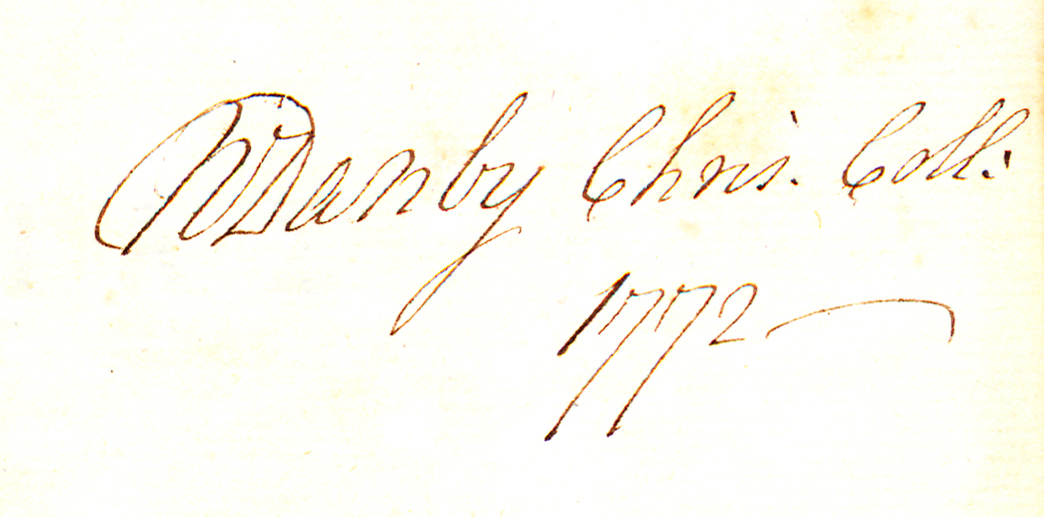 WDanby Chris. Coll:
1772